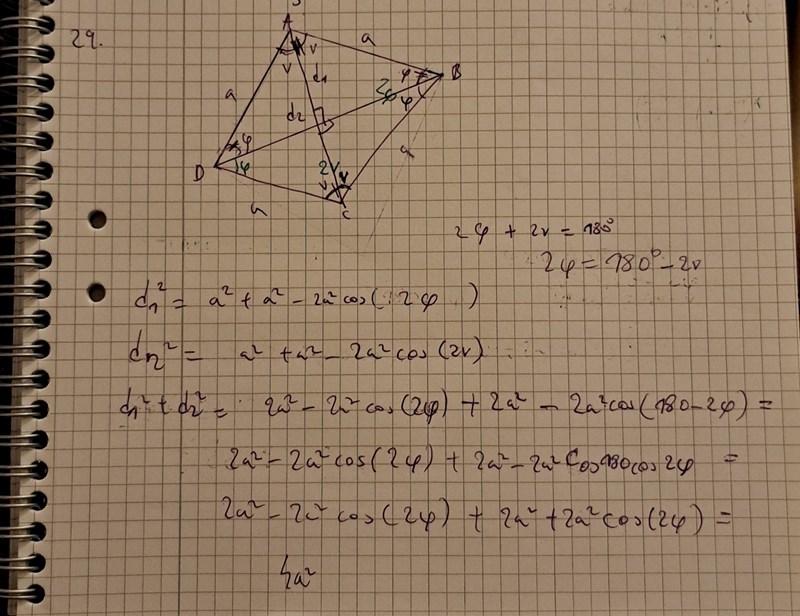 29.
A
a
ν
ν
d₁
φ
B
2φ
φ
a
d₂
φ
D
φ
2ν
a
ν
ν
a
C
2φ + 2ν = 180°
2φ = 180° - 2ν
d₁² = a² + a² - 2a² cos( 2φ )
d₂² = a² + a² - 2a² cos (2ν)
d₁² + d₂² = 2a² - 2a² cos(2φ) + 2a² - 2a² cos(180-2φ) =
2a² - 2a² cos(2φ) + 2a² - 2a² cos180 cos 2φ =
2a² - 2a² cos(2φ) + 2a² + 2a² cos(2φ) =
4a²